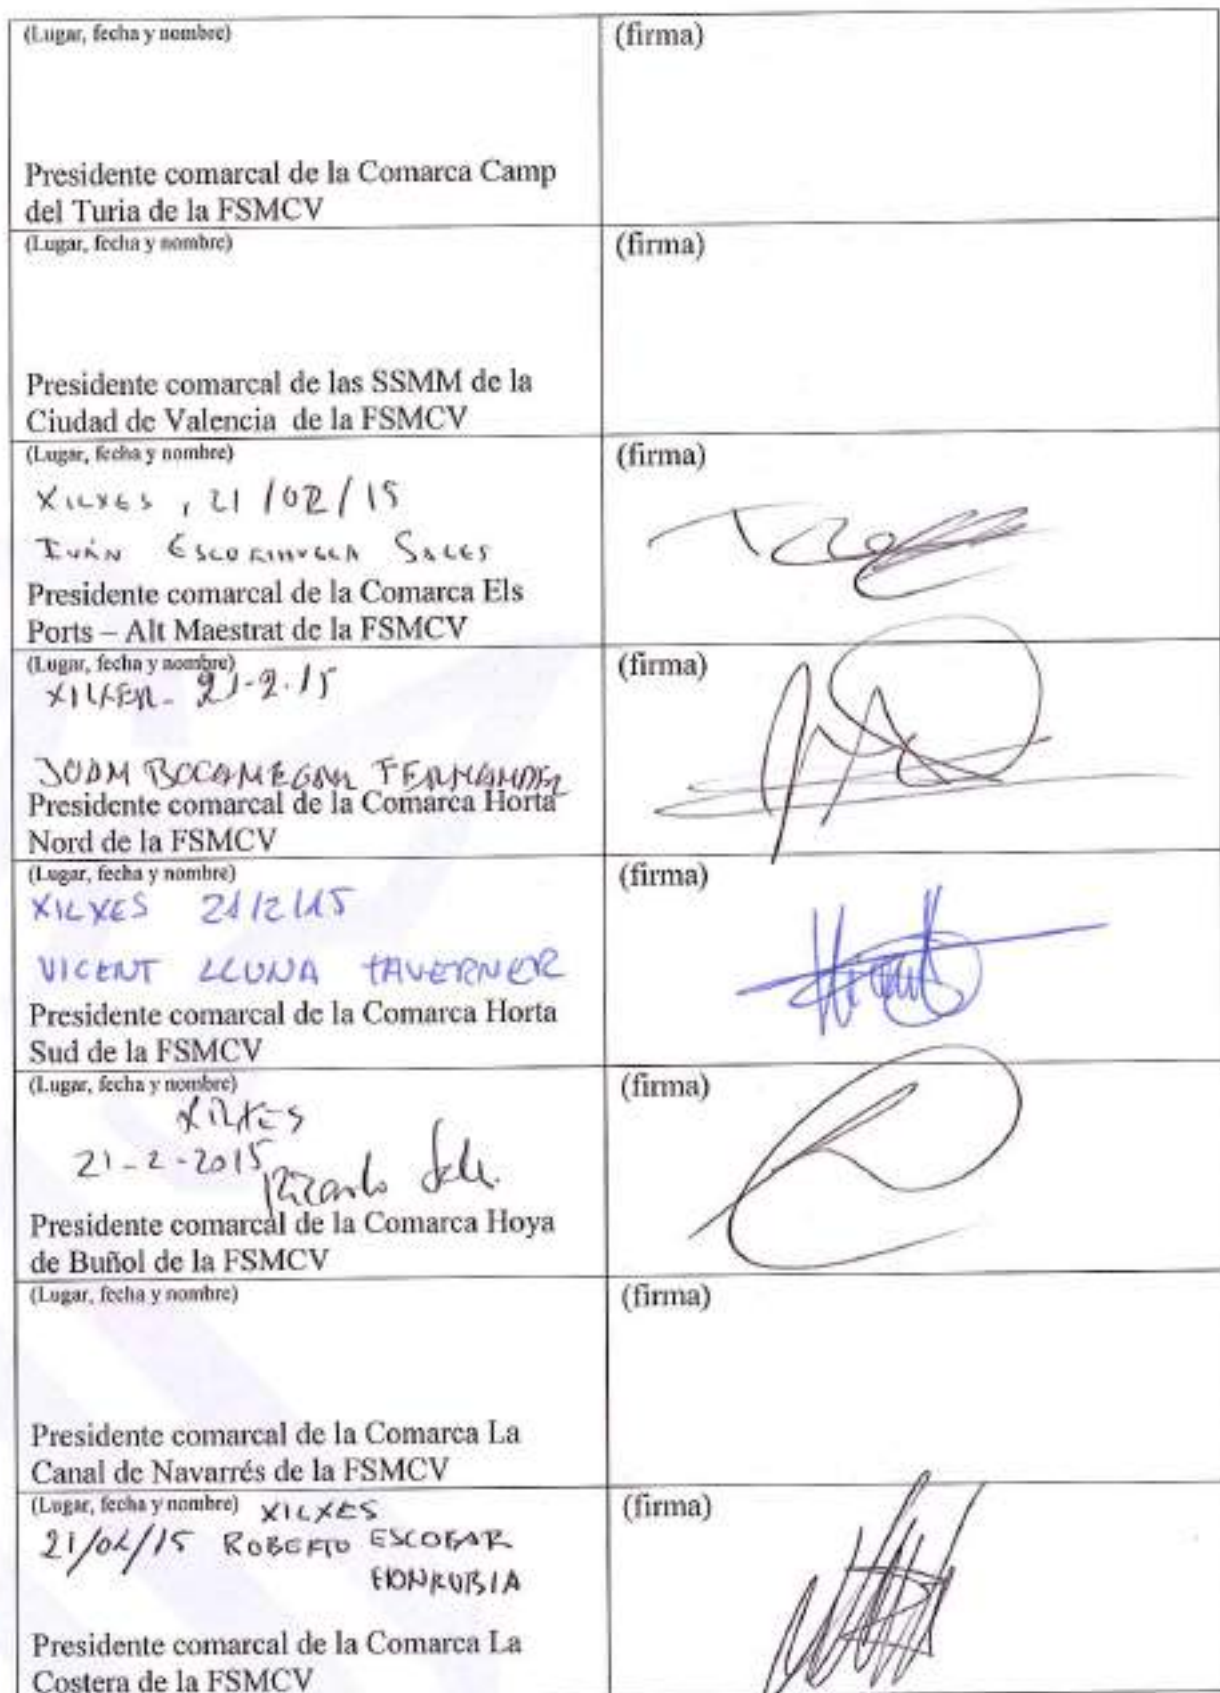 (Lugar, fecha y nombre)
(firma)
Presidente comarcal de la Comarca Camp
del Turia de la FSMCV
(Lugar, fecha y nombre)
(firma)
Presidente comarcal de las SSMM de la
Ciudad de Valencia de la FSMCV
(Lugar, fecha y nombre)
(firma)
XILXES, 21/02/15
IVÁN ESCORIHUELA SALES
Presidente comarcal de la Comarca Els
Ports – Alt Maestrat de la FSMCV
(Lugar, fecha y nombre)
(firma)
21-2-15
Presidente comarcal de la Comarca Horta
Nord de la FSMCV
(Lugar, fecha y nombre)
(firma)
XILXES 21/2/15
VICENT LLUNA TAVERNER
Presidente comarcal de la Comarca Horta
Sud de la FSMCV
(Lugar, fecha y nombre)
(firma)
XILXES
21-2-2015
Ricardo
Presidente comarcal de la Comarca Hoya
de Buñol de la FSMCV
(Lugar, fecha y nombre)
(firma)
Presidente comarcal de la Comarca La
Canal de Navarrés de la FSMCV
(Lugar, fecha y nombre) XILXES
(firma)
21/02/15 ROBERTO ESCOBAR
HONRUBIA
Presidente comarcal de la Comarca La
Costera de la FSMCV